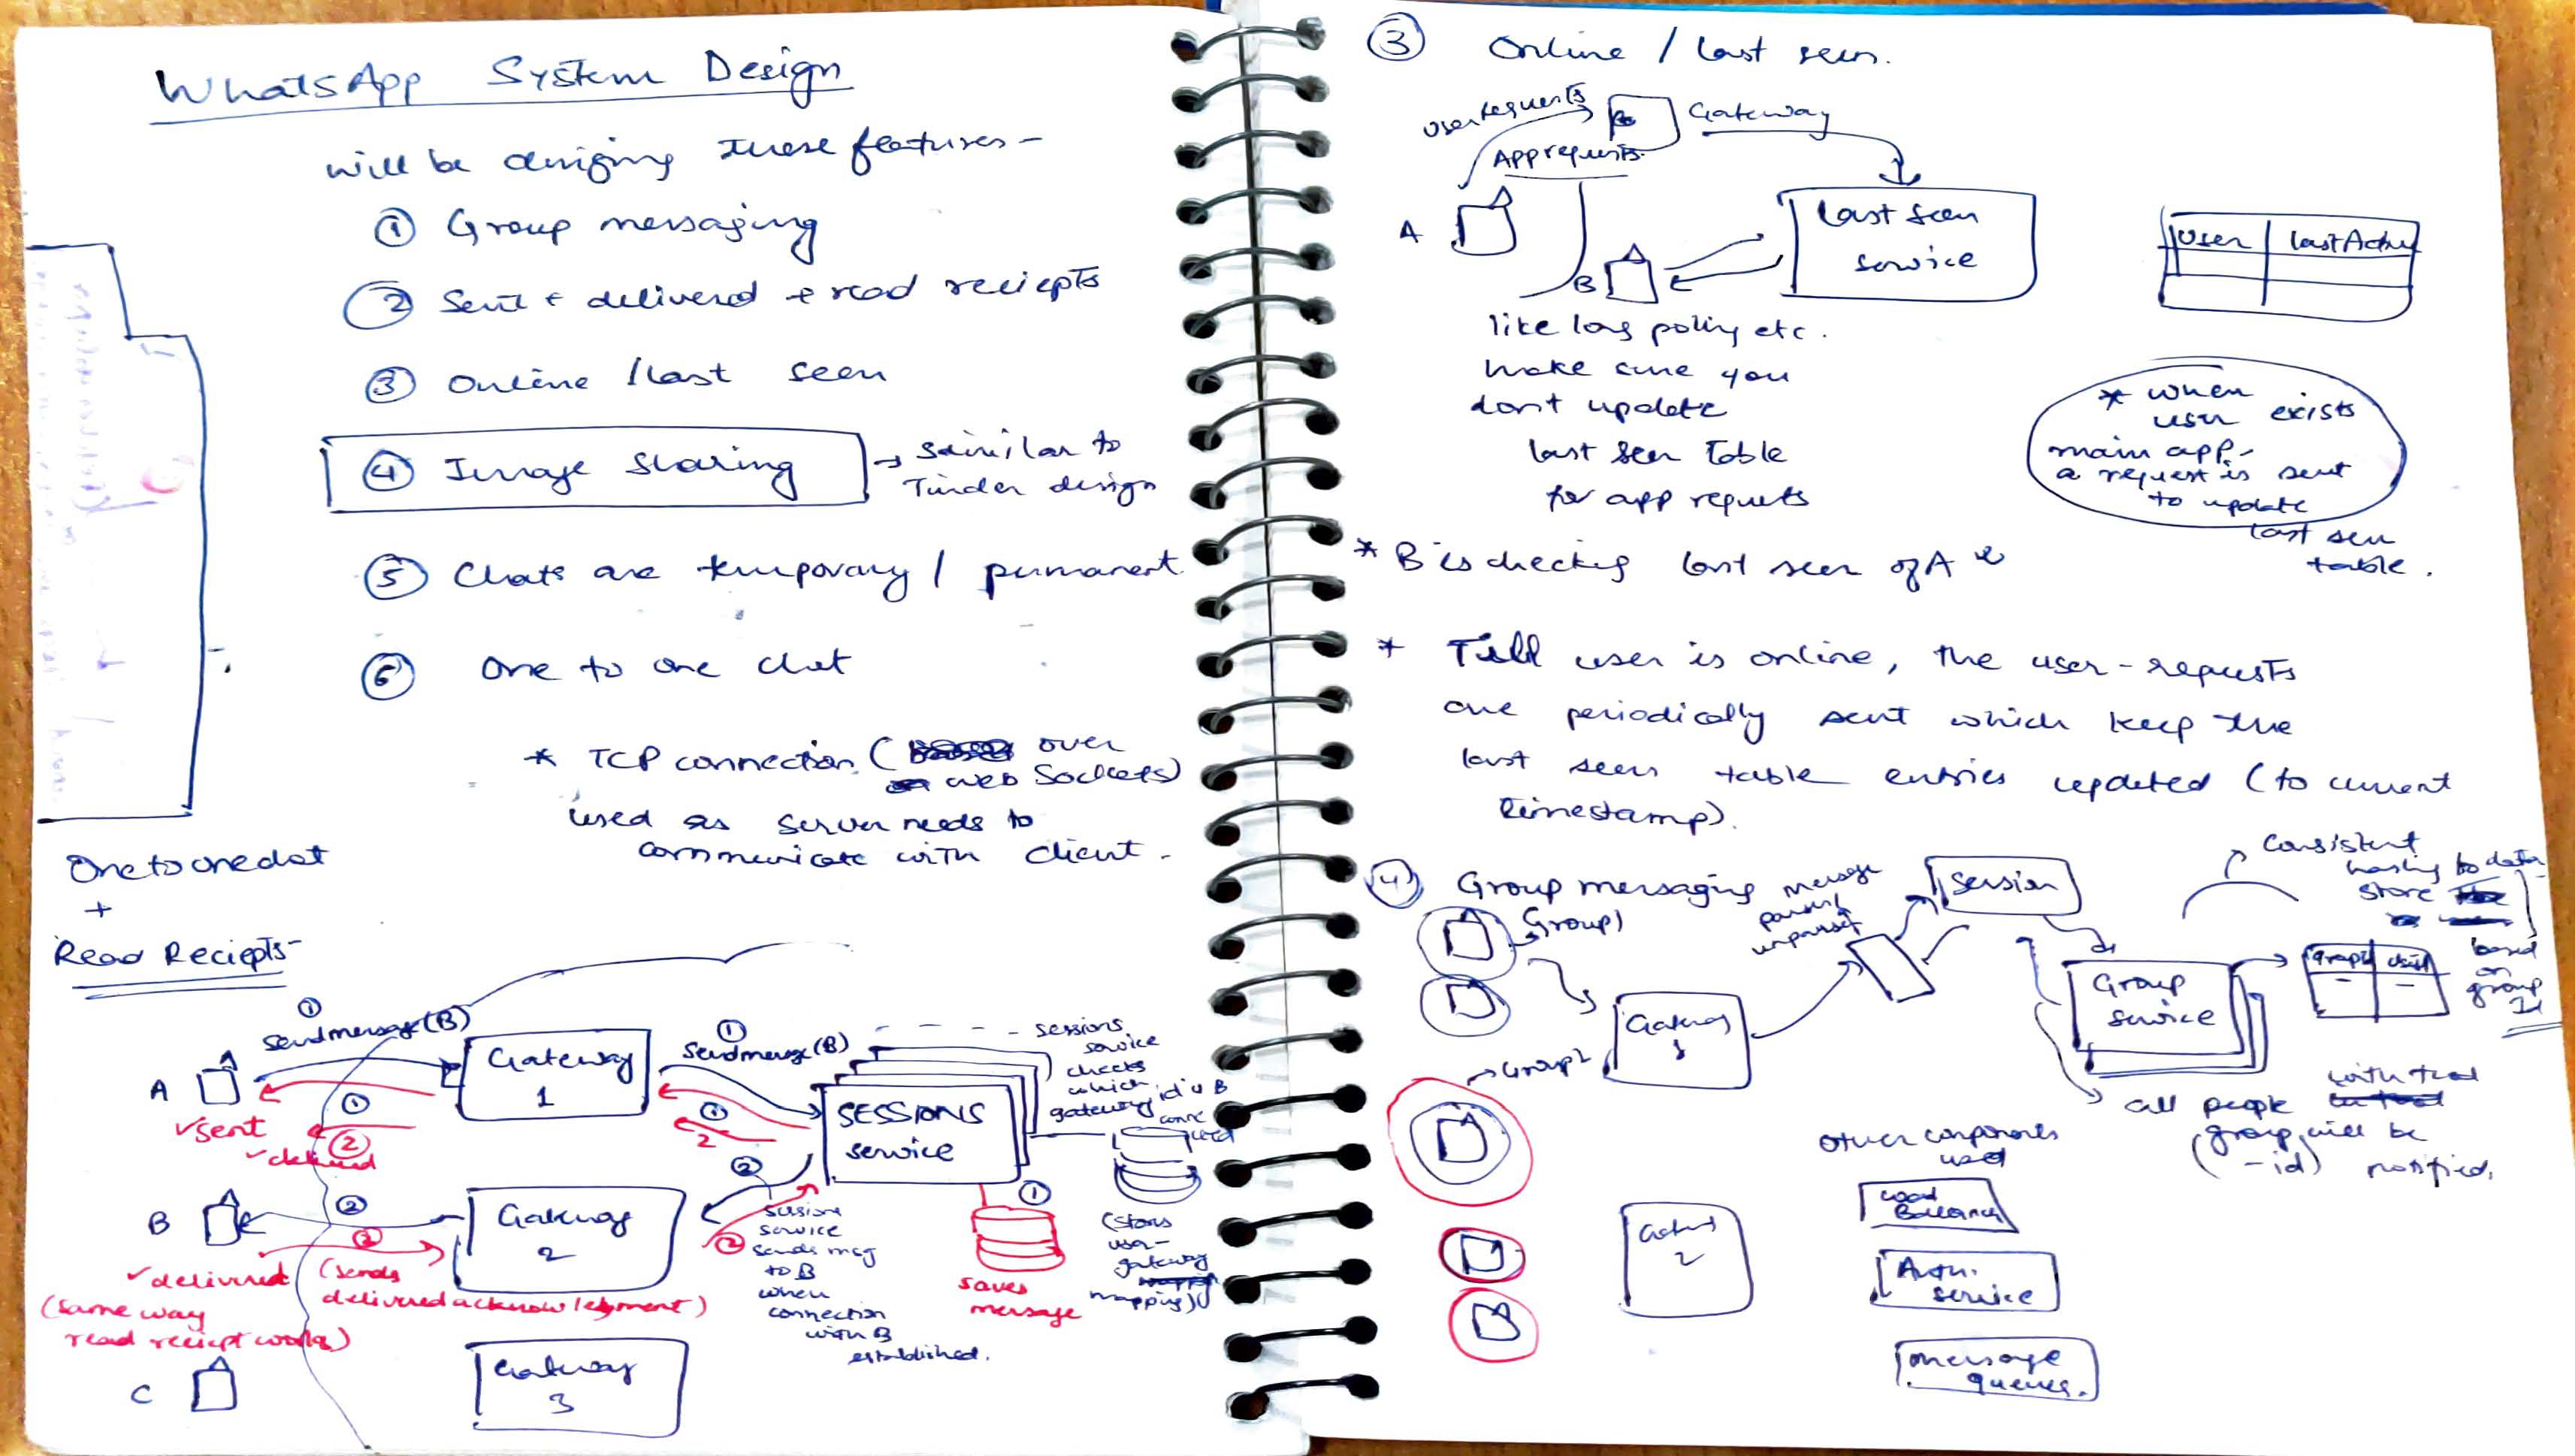 WhatsApp System Design
will be desiging these features -
① Group messaging
② Sent + delivered + read reciepts
③ Online / last seen
④ Image Sharing → similar to
Tinder design
⑤ Chats are temporary / permanent
⑥ One to one chat
* TCP connection (over
web Sockets)
used as server needs to
communicate with client.
One to one chat
+
Read Reciepts -
① sendmessage(B)
Gateway
1
① Sendmessage(B)
SESSIONS
service
sessions
service
checks
which
gateway id is B
connected
A
✓sent
①
②
✓delivered
①
2
B
②
②
Gateway
2
②
session
service
② sends msg
to B
when
connection
with B
established.
①
saves
message
(stores
user-
gateway
mapping)
✓delivered (sends
delivered acknowledgment)
(same way
read reciept works)
C
Gateway
3
③ Online / last seen.
user requests
Gateway
App requests
A
B
Last Seen
service
User | last Active
like long polling etc.
make sure you
dont update
last seen table
for app requests
* when
user exists
main app -
a request is sent
to update
last seen
table.
* B is checking last seen of A
* Till user is online, the user-requests
are periodically sent which keep the
last seen table entries updated (to current
timestamp).
④ Group messaging
message
parser/
unparser
Session
Consistent
hashing to data
store
based
on
group
Id
Group 1
Group 2
Gateway
1
Group
service
all people with that
(group-id) will be
notified.
Gateway
2
Other components
used
Load
Balancer
Auth.
service
message
queues.